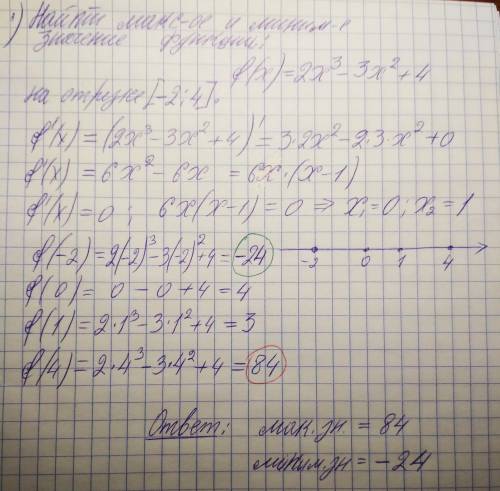 1) Найти макс-ое и миним-е
значение функции:
f(x)=2x³-3x²+4
на отрезке [-2;4].
f'(x)=(2x³-3x²+4)'=3·2x²-2·3·x²+0
f'(x)=6x²-6x=6x·(x-1)
f'(x)=0; 6x(x-1)=0 ⇒ x₁=0; x₂=1
f(-2)=2(-2)³-3(-2)²+4=-24
-2 0 1 4
f(0)= 0-0+4=4
f(1)=2·1³-3·1²+4=3
f(4)=2·4³-3·4²+4=84
Ответ: мак.зн.=84
миним.зн=-24